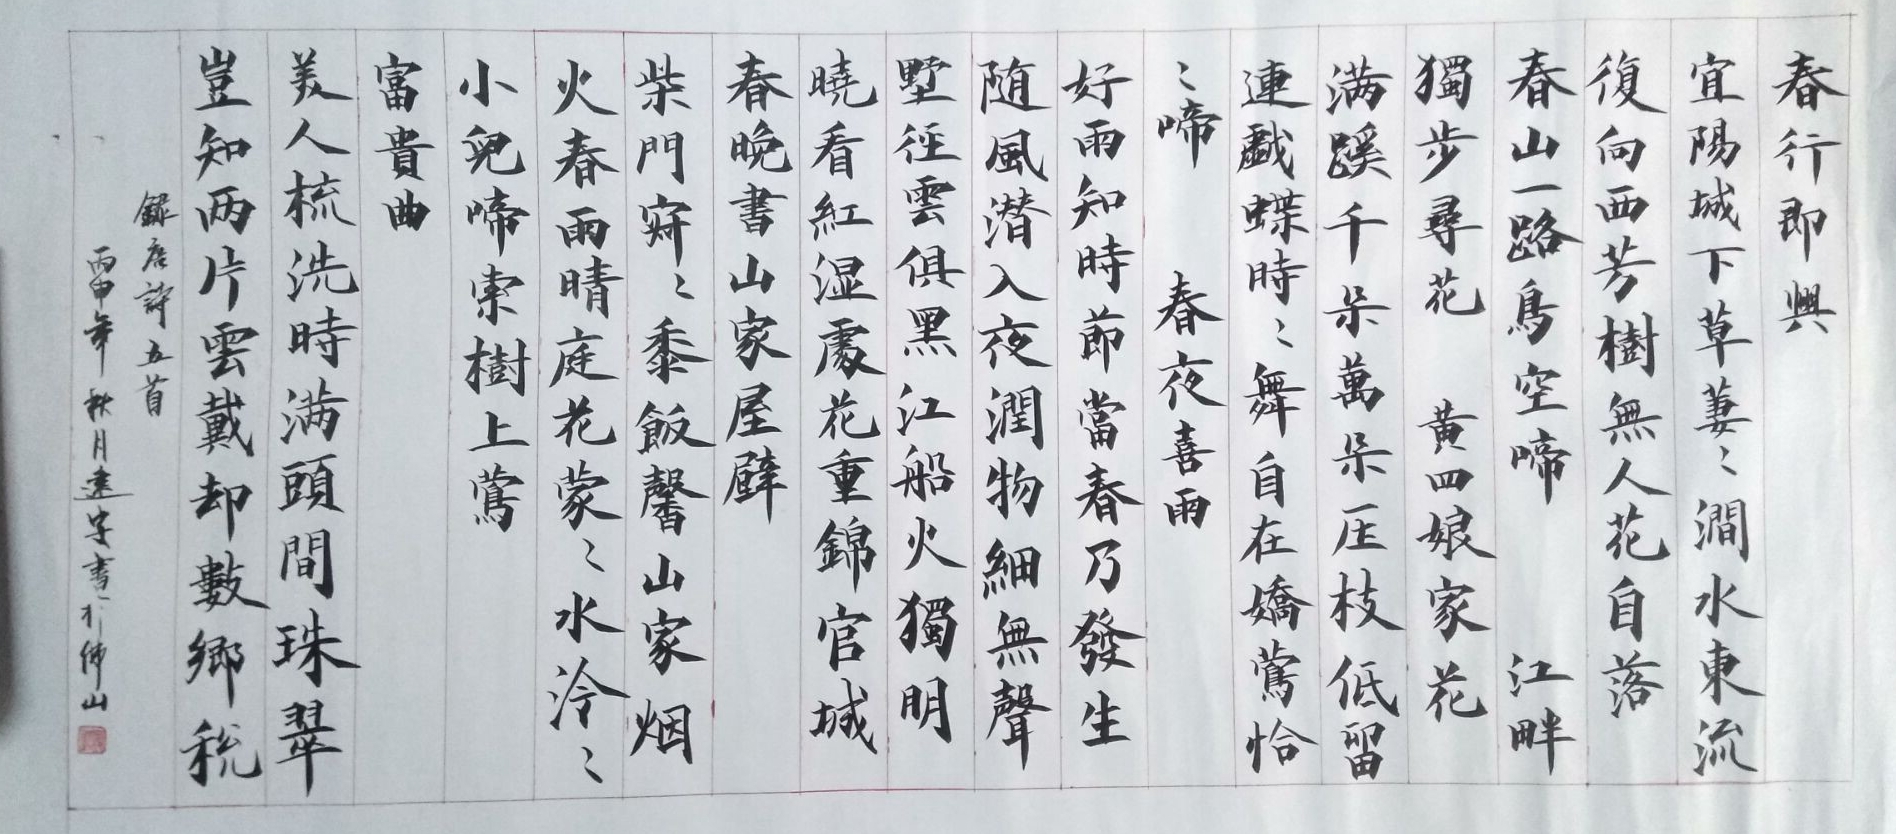 春行即興
宜陽城下草萋〻澗水東流
復向西芳樹無人花自落
春山一路鳥空啼 江畔
獨步尋花 黄四娘家花
满蹊千朵萬朵压枝低留
連戲蝶時〻舞自在嬌鶯恰
〻啼 春夜喜雨
好雨知時節當春乃發生
随風潜入夜潤物細無聲
墅徑雲俱黑江船火獨明
曉看紅湿處花重錦官城
春晚書山家屋壁
柴門寂〻黍飯馨山家烟
火春雨晴庭花蒙〻水泠〻
小兒啼索樹上鶯
富貴曲
美人梳洗時满頭間珠翠
豈知两片雲戴却數鄉税
録唐詩五首
丙申年秋月書於佛山